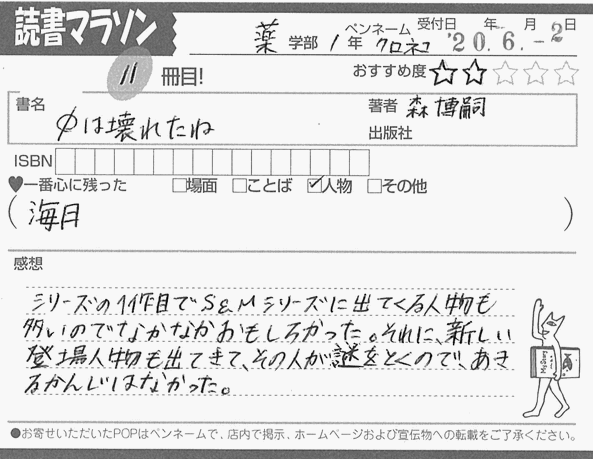 読書マラソン
薬 学部 1 年 ペンネーム クロネコ 受付日 年 月 日 '20.6.-2
11 冊目! おすすめ度 ☆☆☆☆☆
書名 φは壊れたね 著者 森博嗣
出版社
ISBN
♥一番心に残った □場面 □ことば ☑人物 □その他
(海月)
感想
シリーズの1作目でS&Mシリーズに出てくる人物も
多いのでなかなかおもしろかった。それに、新しい
登場人物も出てきて、その人が謎をとくので、あき
るかんじはなかった。
●お寄せいただいたPOPはペンネームで、店内で掲示、ホームページおよび宣伝物への転載をご了承ください。